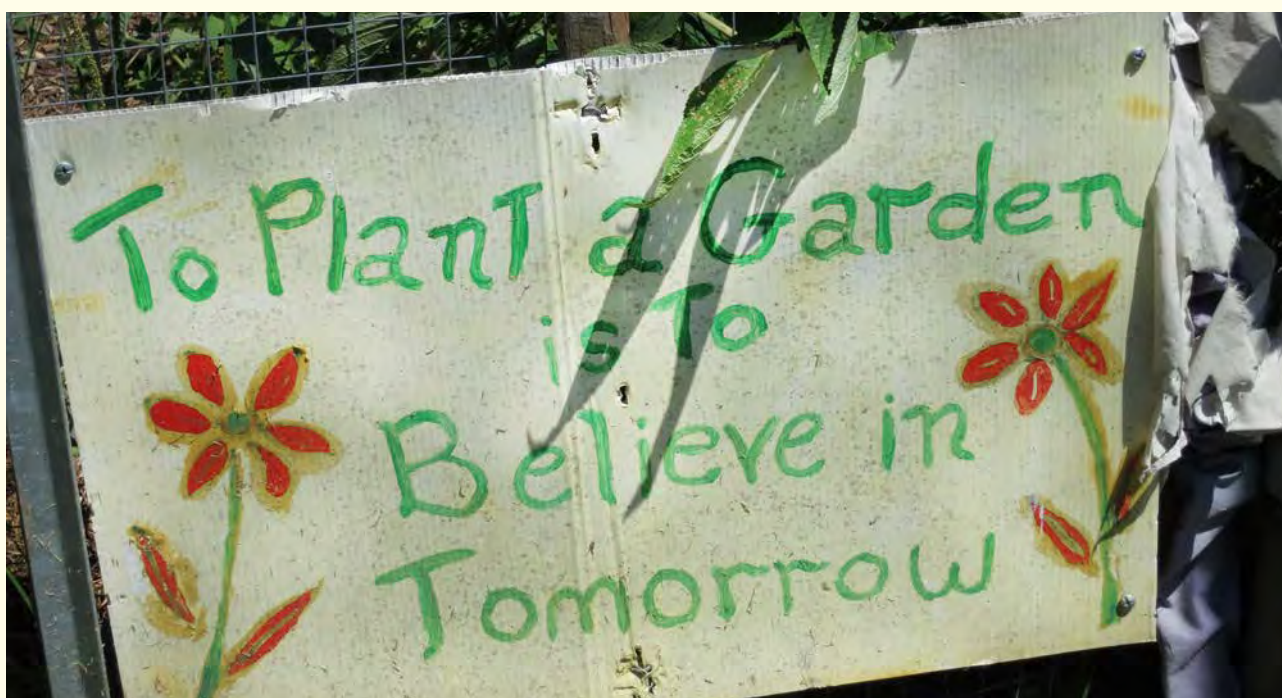 To Plant a Garden
is To
Believe in
Tomorrow